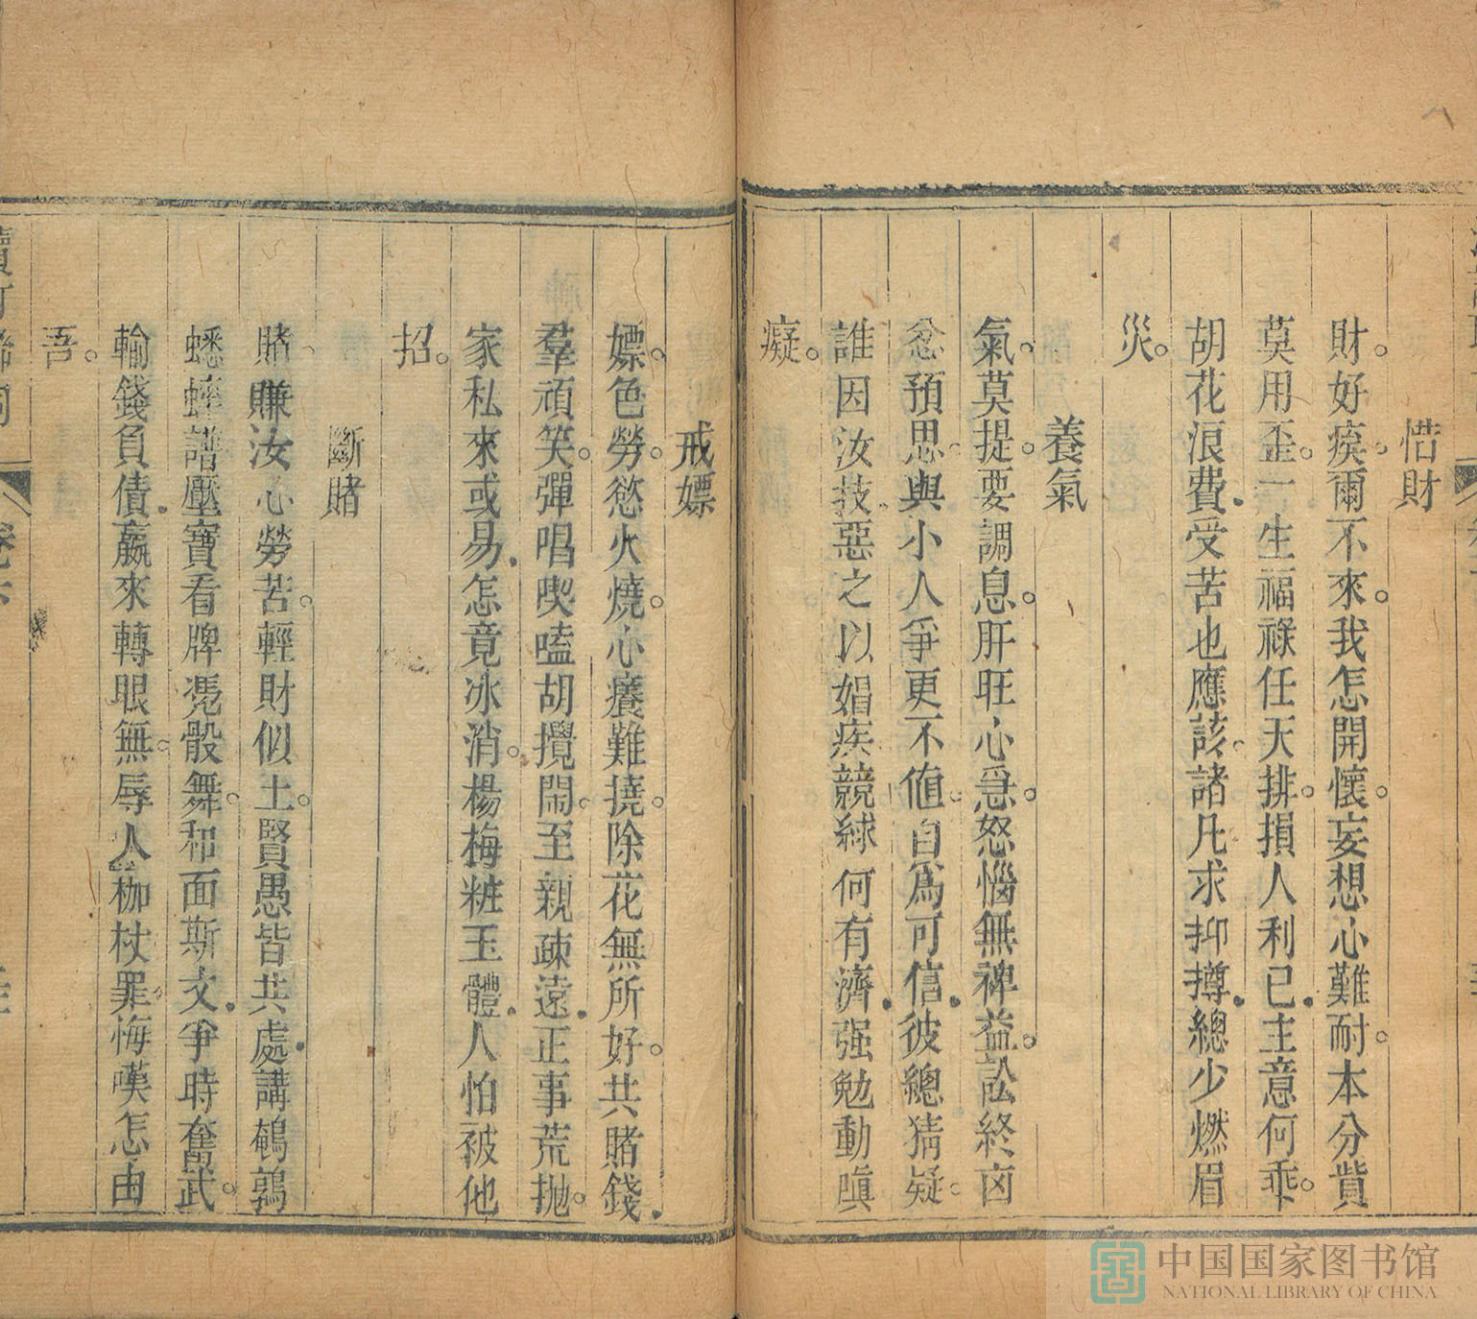 惜財
財好痴爾不來我怎開懷妄想心難耐本分貲
莫用歪一生福祿任天排損人利已主意何乖
胡花浪費受苦也應該諸凡求抑撙總少燃眉
災
養氣
氣莫提要調息肝旺心急怒惱無裨益訟終凶
忿預思與小人爭更不值自爲可信彼總猜疑
誰因汝技惡之以娼疾競絿何有濟强勉動瞋
癡
戒嫖
嫖色勞慾火燒心癢難撓除花無所好共賭錢
羣頑笑彈唱喫嗑胡攪鬧至親疎遠正事荒拋
家私來或易怎竟冰消楊梅粧玉體人怕被他
招
斷賭
賭賺汝心勞苦輕財似土賢愚皆共處講鵪鶉
蟋蟀譜壓寶看牌凴骰舞和面斯文爭時奮武
輸錢負債嬴來轉眼無辱人枷杖罪悔嘆怎由
吾
中国国家图书馆
NATIONAL LIBRARY OF CHINA